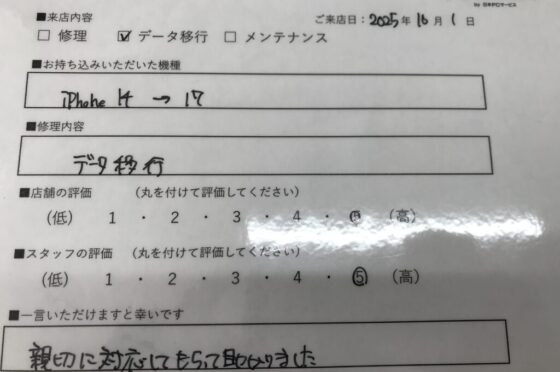 by 日本PCサービス
■来店内容 ご来店日：2025年10月1日
□ 修理 ☑ データ移行 □ メンテナンス
■お持ち込みいただいた機種
iPhone 14 → 17
■修理内容
データ移行
■店舗の評価 （丸を付けて評価してください）
（低） 1 ・ 2 ・ 3 ・ 4 ・ ⑤ （高）
■スタッフの評価 （丸を付けて評価してください）
（低） 1 ・ 2 ・ 3 ・ 4 ・ ⑤ （高）
■一言いただけますと幸いです
親切に対応してもらって助かりました